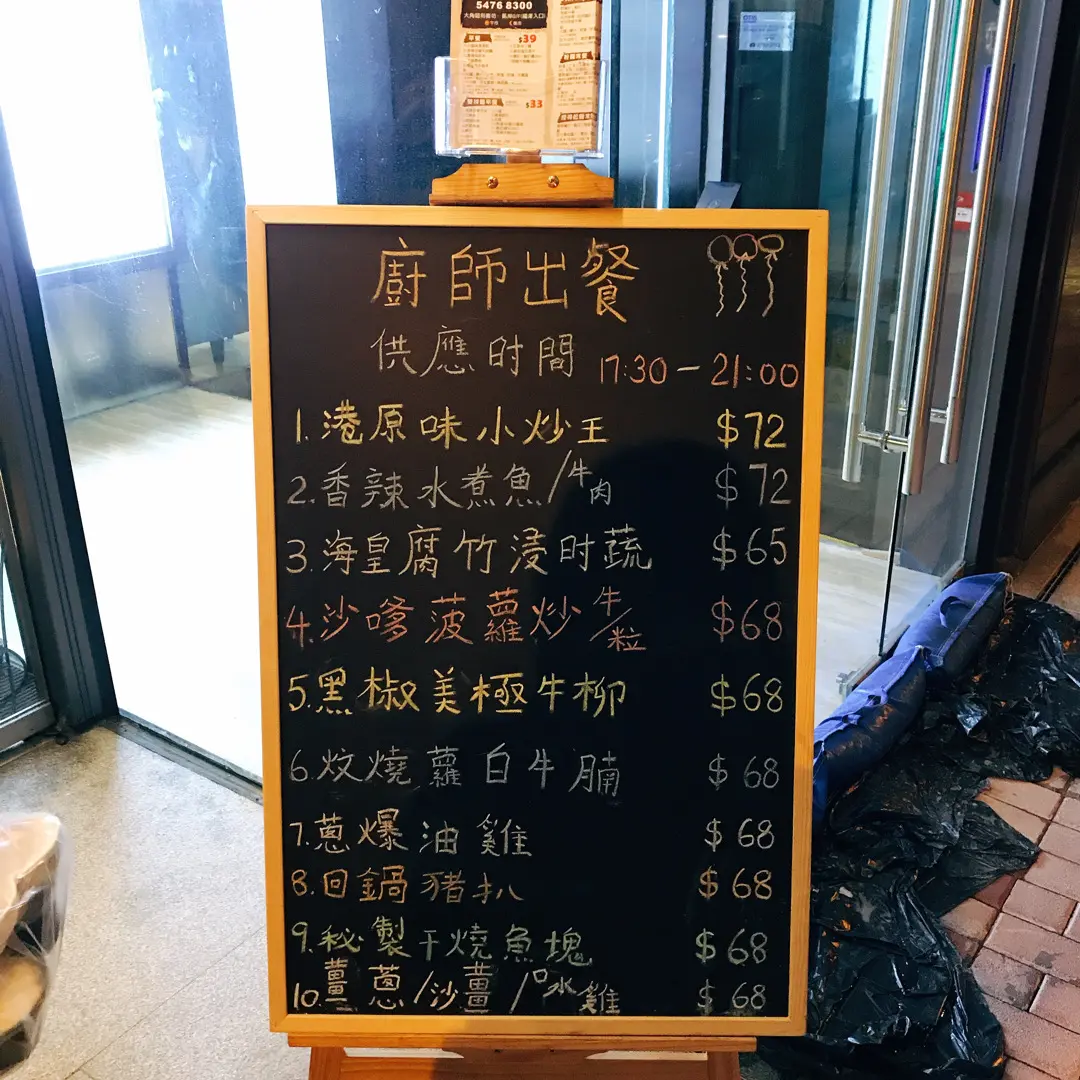 5476 8300
$39
$33
廚師出餐
供應时間 17:30-21:00
1. 港原味小炒王 $72
2. 香辣水煮魚/牛肉 $72
3. 海皇腐竹浸时蔬 $65
4. 沙嗲菠蘿炒牛/粒 $68
5. 黑椒美極牛柳 $68
6. 炆燒蘿白牛腩 $68
7. 蔥爆油雞 $68
8. 回鍋豬扒 $68
9. 秘製干燒魚塊 $68
10. 薑蔥/沙薑/口水雞 $68